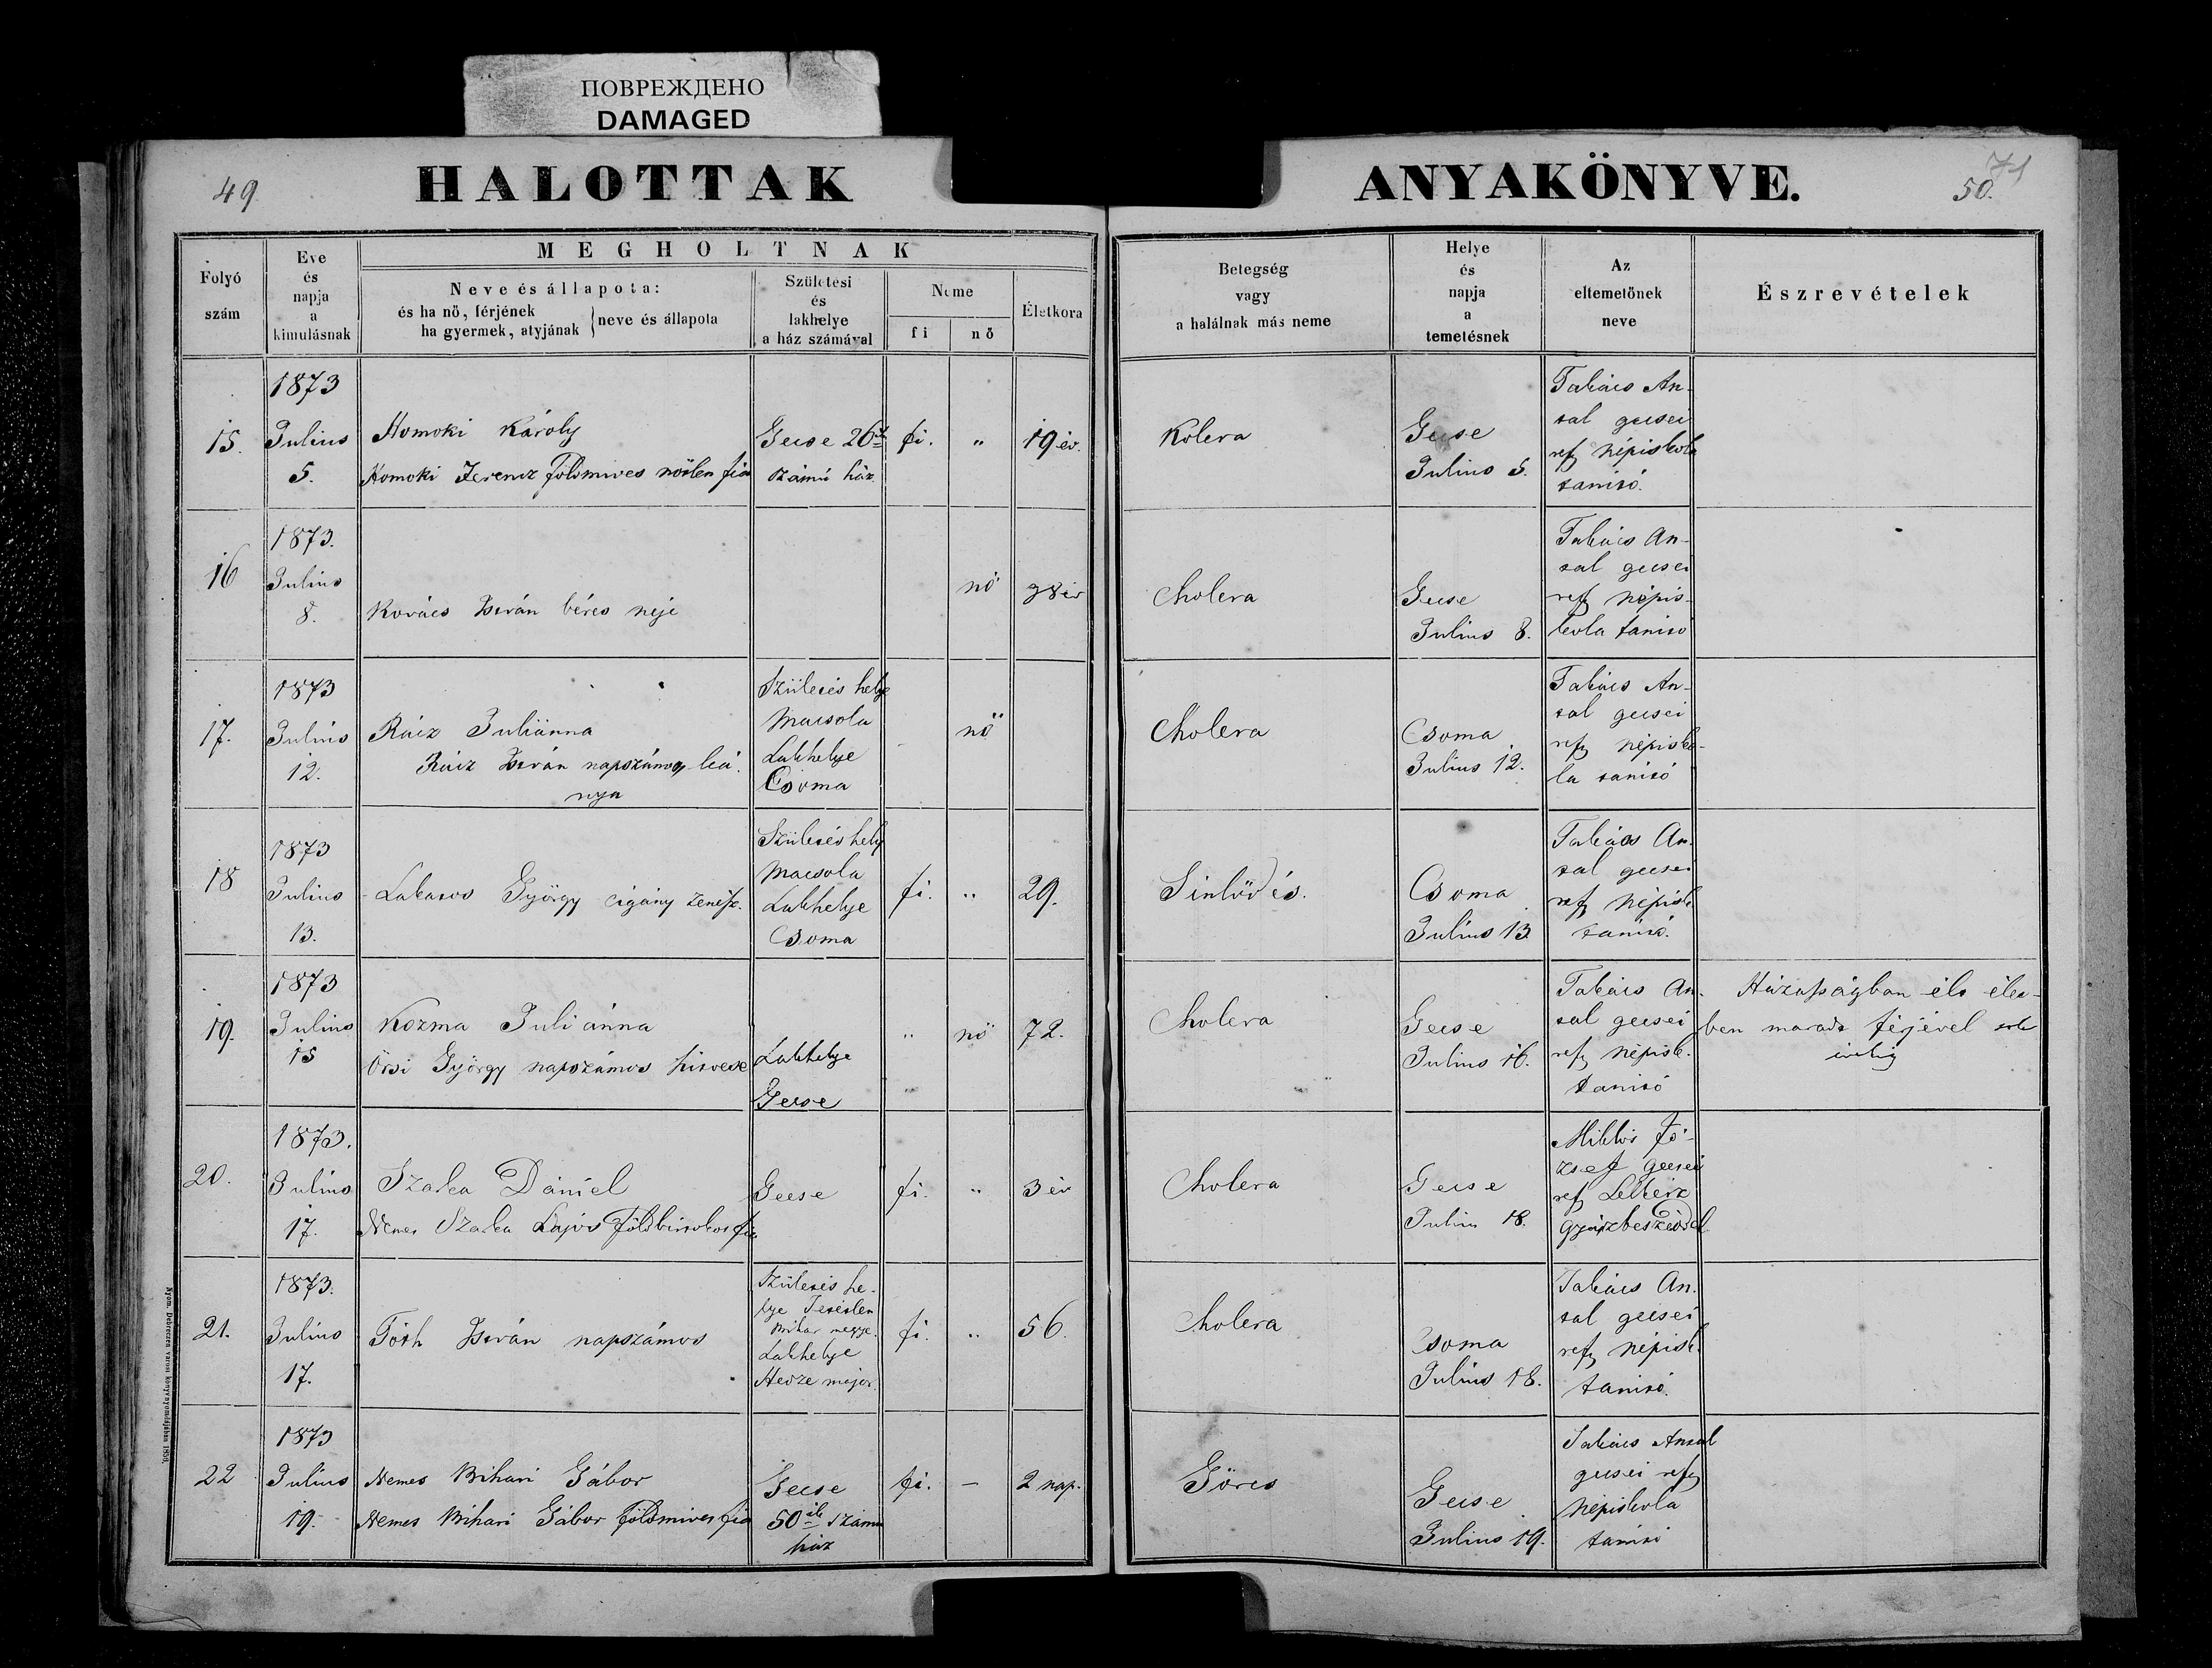 ПОВРЕЖДЕНО
DAMAGED
49
HALOTTAK
ANYAKÖNYVE.
71
50.
Folyó
szám
Eve
és
napja
a
kimulásnak
MEGHOLTNAK
Neve és állapota:
és ha nő, férjének
ha gyermek, atyjának
neve és állapota
Születesi
és
lakhelye
a ház számával
Neme
fi
nő
Életkora
Betegség
vagy
a halálnak más neme
Helye
és
napja
a
temetésnek
Az
eltemetőnek
neve
Észrevételek
15.
1873
Julius
5.
Homoki Károly
Homoki Ferencz földmives nőtlen fia
Gecse 26ik
számú ház
fi.
"
19 év.
Kolera
Gecse
Julius 5.
Takács An-
tal gecsei
ref népiskola
tanitó.
16
1873.
Julius
8.
Kovács István béres neje
nő
38 év
Cholera
Gecse
Julius 8.
Takács An-
tal gecsei
ref népis-
kola tanitó
17.
1873
Julius
12.
Rácz Juliánna
Rácz István napszámos leá-
nya
Születés helye
Macsola
Lakhelye
Csoma
nő
Cholera
Csoma
Julius 12.
Takács An-
tal gecsei
ref népisko-
la tanitó
18
1873
Julius
13.
Lakatos György cigány zenész.
Születés hely
Macsola
Lakhelye
Csoma
fi.
"
29.
Sinlődés.
Csoma
Julius 13
Takács An-
tal gecsei
ref népisk
tanitó.
19.
1873
Julius
15
Kozma Juliánna
Örsi György napszámos hitvese
Lakhelye
Gecse
"
nő
72.
Cholera
Gecse
Julius 16.
Takács An-
tal gecsei
ref népisk.
tanitó
Házasságban élt élet-
ben maradt férjével sok
évekig
20.
1873.
Julius
17.
Szatka Dániel
Nemes Szatka Lajos földbirtokos fia
Gecse
fi.
"
3 év
Cholera
Gecse
Julius 18.
Miklós Jó-
zsef gecsei
ref Lelkész
gyászbeszéddel.
21.
1873.
Julius
17.
Tóth István napszámos
Születés he-
lye Tetétlen
Bihar megye.
Lakhelye
Hetze major.
fi.
"
56.
Cholera
Csoma
Julius 18.
Takács An-
tal gecsei
ref népisk.
tanitó.
22
1873
Julius
19.
Nemes Bihari Gábor
Nemes Bihari Gábor földmives fia
Gecse
50ik számu
ház
fi.
—
2 nap.
Görcs
Gecse
Julius 19.
Takács Antal
gecsei ref
népiskola
tanitó
Nyom. Debreczen város könyvnyomdájában